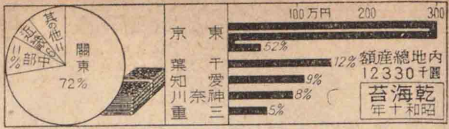 其の他
中部
關東
72%
100万円 200 300
東京
52%
千葉
12%
愛知
9%
神奈川
8%
三重
5%
内地總産額
12330千圓
乾海苔
昭和十年